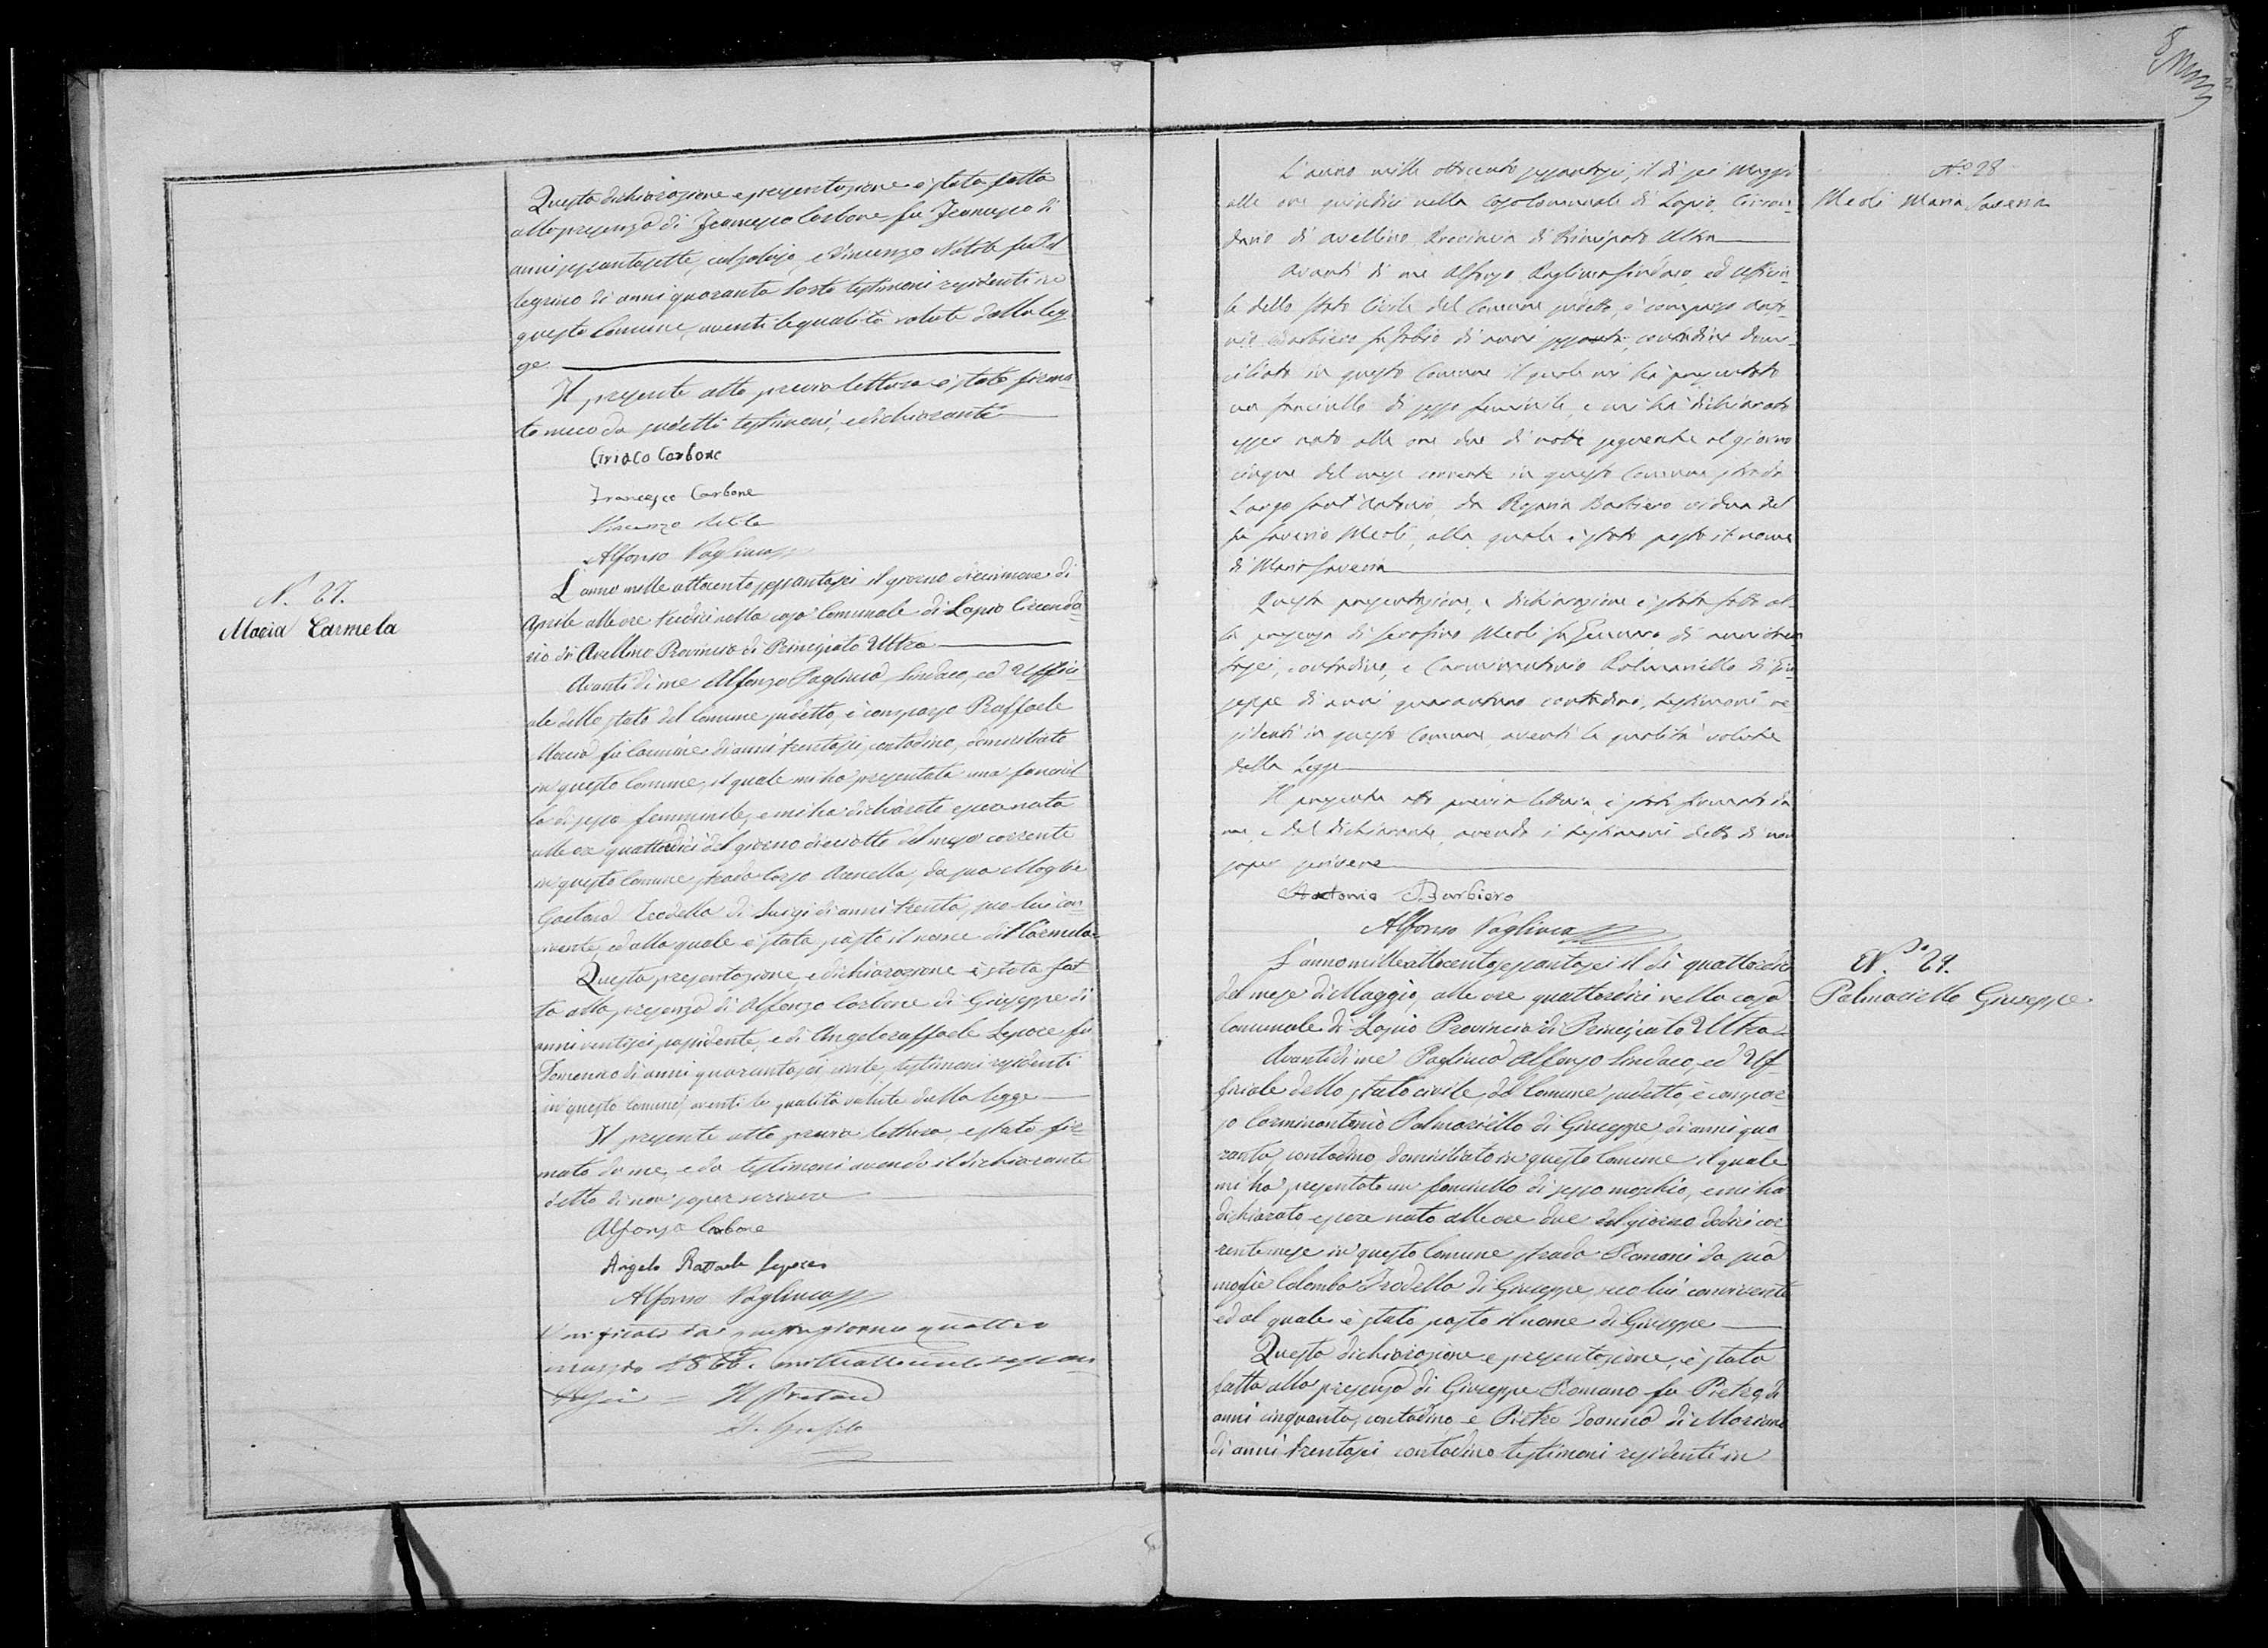 Questa dichiarazione e presentazione è stata fatta
alla presenza di Francesco Carbone fu Francesco di
anni sessantasette, calzolajo, e Vincenzo Nittolo fu Pel
legrino di anni quaranta Sarto testimoni residenti in
questo Comune, aventi le qualità volute dalla leg
ge
Il presente atto previa lettura è stato firma
to meco da sudetti testimoni, e dichiarante
Ciriaco Carbone
Francesco Carbone
Vincenzo
Alfonso Pagliuca
N. 27.
Maria Carmela
L'anno mille ottocento sessantasei il giorno diecinnove di
Aprile alle ore tredici nella casa Comunale di Lapio Circonda
rio di Avellino Provincia di Principato Ultra
Avanti di me Alfonzo Pagliuca Sindaco, ed Uffici
ale dello stato del Comune sudetto, è comparso Raffaele
fu Carmine di anni trentasei, contadino, domiciliato
in questo Comune, il quale mi ha presentata una fanciul
la di sesso femminile, e mi ha dichiarato essere nata
alle ore quattordici del giorno dieciotto del mese corrente
in questo Comune strada Largo Arenella, da sua Moglie
Gaetana Trodella di Luigi di anni trenta, seco lui con
vivente, ed alla quale è stata posto il nome di Ma Carmela
Questa presentazione, e dichiarazione è stata fat
ta alla presenza di Alfonzo Carbone di Giuseppe di
anni ventisei possidente, e di Angeloraffaele Lepore fu
Domenico di anni quarantasei, civile, testimoni residenti
in questo comune, aventi le qualità volute dalla legge
Il presente atto previa lettura, è stato fir
mato da me, e da testimoni avendo il dichiarante
detto di non saper scrivere
Alfonzo Carbone
Angelo Raffaele Lepore
Alfonso Pagliuca
Verificato da giorno quattro
maggio 1866. milleottocentosessan
tasei = Il Pretore
8
No 28
Meoli Maria Saveria
L'anno mille ottocento sessantasei, il dì sei Maggio
alle ore quindici nella Casa Comunale di Lapio, Circon
dario di Avellino Provincia di Principato Ultra
Avanti di me Alfonzo Pagliuca Sindaco, ed Uffizia
le dello stato Civile del Comune sudetto, è comparso Anto
nio Barbiero fu Fabio di anni sessanta, contadino domi
ciliato in questo Comune il quale mi ha presentato
una fanciulla di sesso feminile, e mi ha dichiarato
esser nata alle ore due di notte seguente al giorno
cinque del mese corrente in questo Comune strada
Largo Sant'Antonio, da Rosaria Barbiero vedova del
fu Saverio Meoli, alla quale è stato posto il nome
di Maria Saveria
Questa presentazione, e dichiarazione è stata fatta al
la presenza di Serafino Meoli fu Gennaro di anni tren
tasei, contadino, e Carminantonio Palmariello di Giu
seppe di anni quarantuno contadino, testimoni re
sidenti in questo Comune, aventi le qualità volute
dalla Legge
Il presente atto previa lettura, è stato firmato da
me, e dal dichiarante, avendo i testimoni detto di non
saper scrivere
Antonio Barbiero
Alfonso Pagliuca
No. 29.
Palmariello Giuseppe
L'anno mille ottocento sessantasei il dì quattordici
del mese di Maggio, alle ore quattordici nella casa
Comunale di Lapio Provincia di Principato Ultra
Avanti di me Pagliuca Alfonzo Sindaco, ed Uf
ficiale dello stato civile, del Comune sudetto, è compar
so Carminantonio Palmariello di Giuseppe, di anni qua
ranta, contadino domiciliato in questo Comune il quale
mi ha presentato un fanciullo di sesso maschio, e mi ha
dichiarato essere nato alle ore due del giorno dodici cor
rente mese in questo Comune strada Romani da sua
moglie Colomba Trodella di Giuseppe, seco lui convivente
ed al quale è stato posto il nome di Giuseppe
Questa dichiarazione e presentazione, è stata
fatta alla presenza di Giuseppe Romano fu Pietro, di
anni cinquanta, contadino e Pietro Ioanna di Mariano
di anni trentasei contadino testimoni residenti in